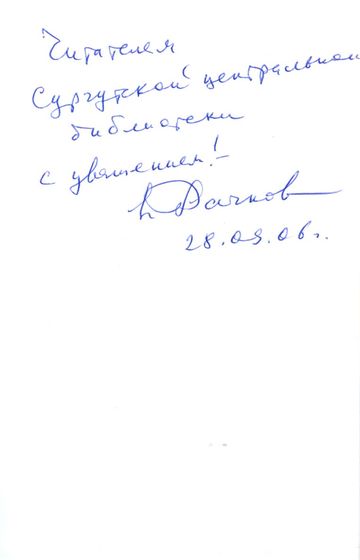 Читателям
Сургутской центральной
библиотеки
с уважением!
28.09.06г.